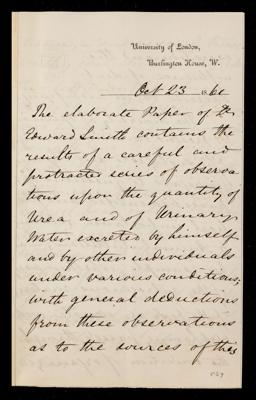 University of London,
Burlington House, W.
Oct 23 1860
The elaborate Paper of Dr
Edward Smith contains the
results of a careful and
protracted series of observa
tions upon the quantity of
Urea and of Urinary
Water excreted by himself
and by other individuals
under various conditions;
with general deductions
from these observations
as to the sources of the